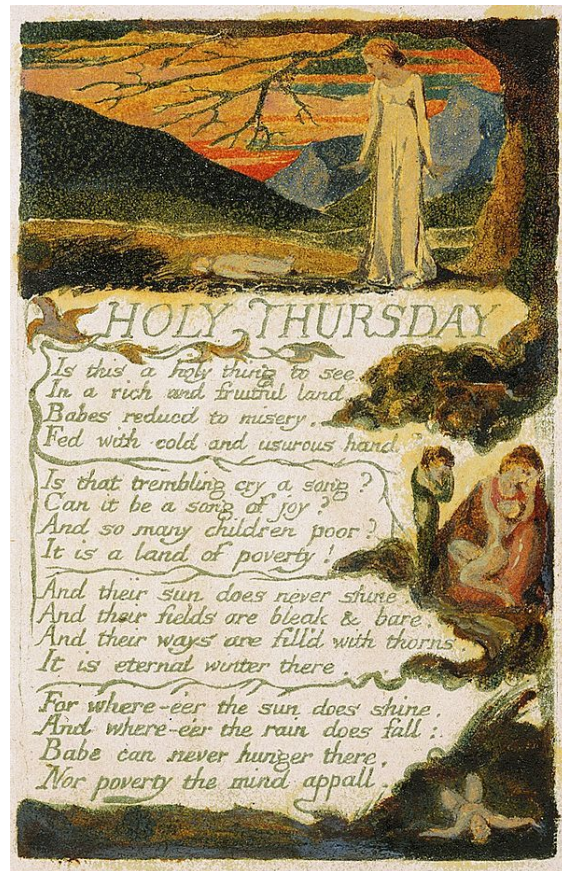 HOLY THURSDAY
Is this a holy thing to see
In a rich and fruitful land
Babes reducd to misery.
Fed with cold and usurous hand?
Is that trembling cry a song?
Can it be a song of joy?
And so many children poor?
It is a land of poverty!
And their sun does never shine
And their fields are bleak & bare
And their ways are fill'd with thorns
It is eternal winter there
For where-e'er the sun does shine.
And where-e'er the rain does fall:
Babe can never hunger there,
Nor poverty the mind appall.